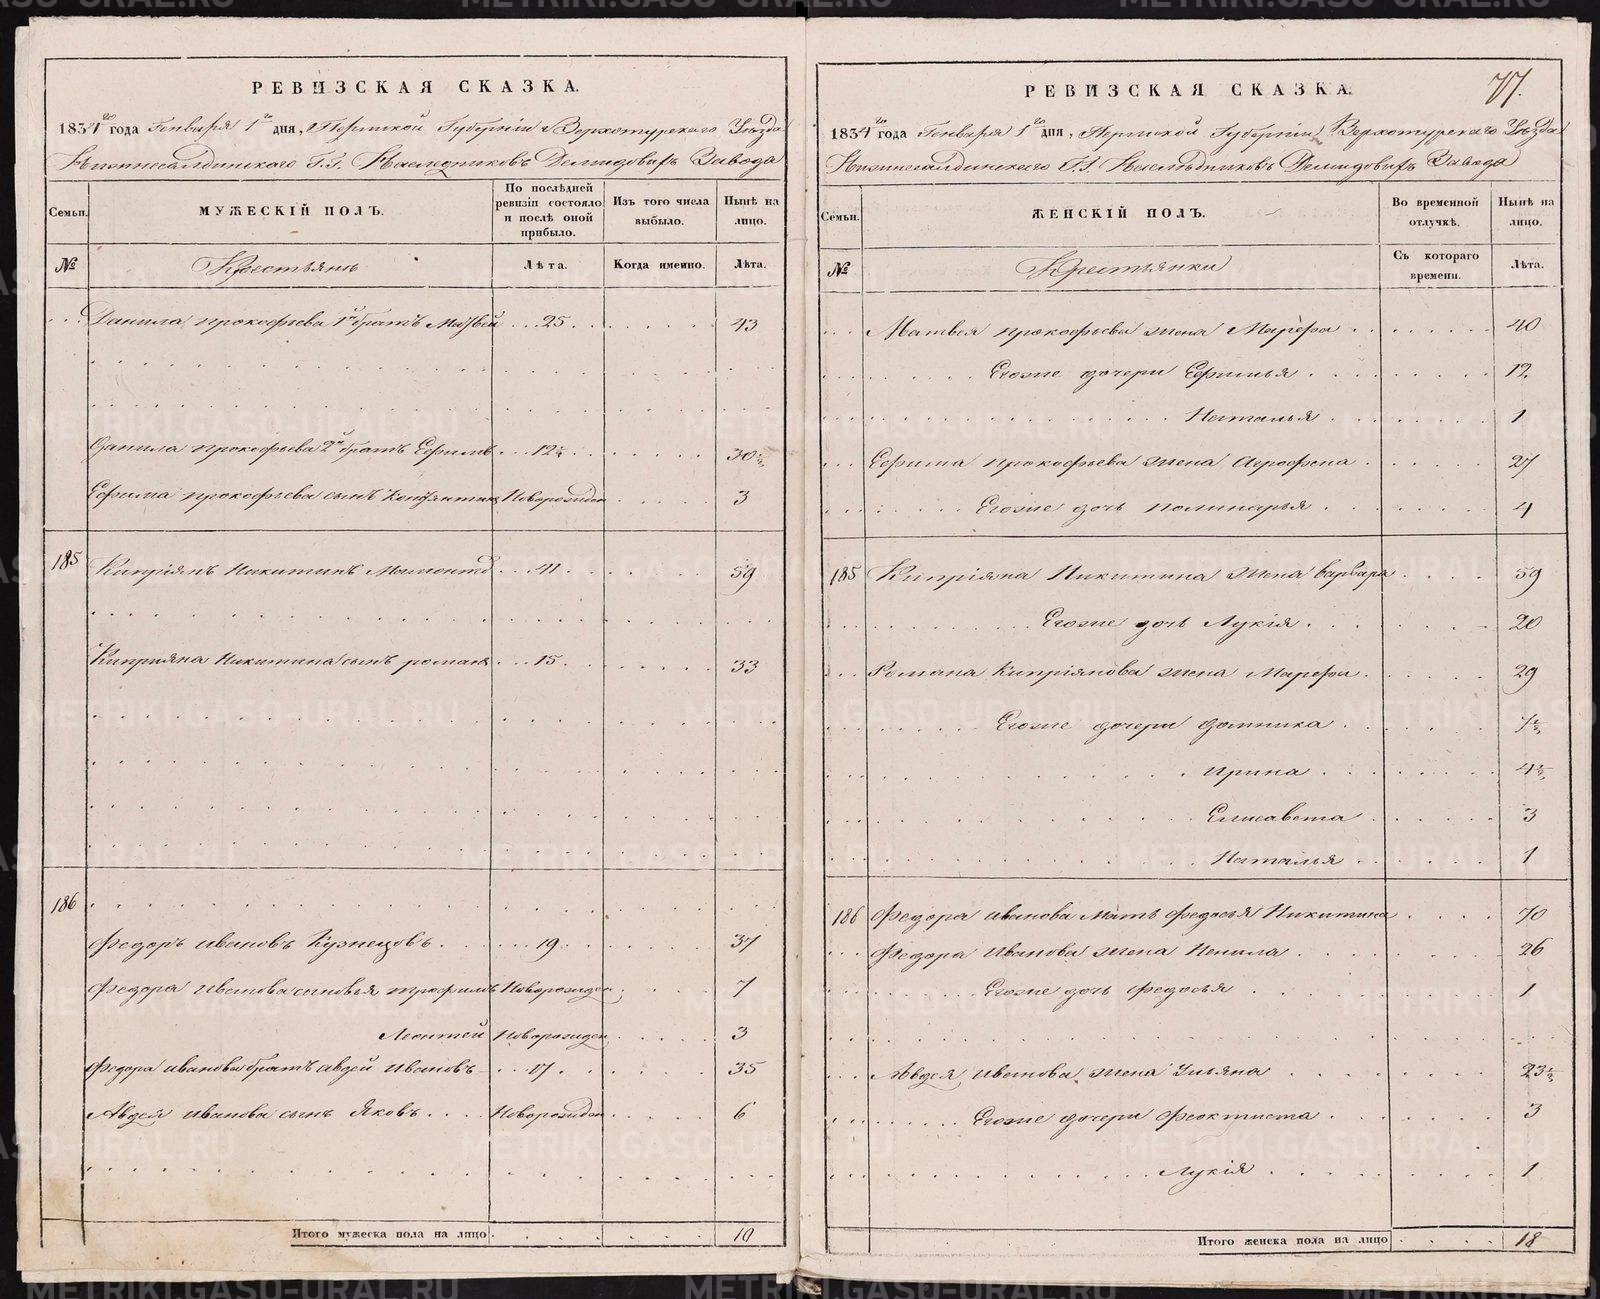 РЕВИЗСКАЯ СКАЗКА.
1834го года Генваря 1го дня, Пермской Губернiи Верхотурского Уѣзда
Нижнесалдинского Г.г. Наследниковъ Демидовыхъ Завода
Семьи.
МУЖЕСКIЙ ПОЛЪ.
По послѣдней ревизiи состояло и послѣ оной прибыло.
Изъ того числа выбыло.
Нынѣ на лицо.
№
Крестьянъ
Лѣта.
Когда именно.
Лѣта.
Данила прокофьева 1й братъ Матвей 25 43
Данила прокофьева 2й братъ Ефимъ 12½ 30½
Ефима прокофьева сынъ Константинъ Новорожден 3
185 Кипрiянъ Никитинъ 41 59
Киприяна Никитина сынъ романъ 15 33
186
Федоръ ивановъ Кузнецовъ 19 37
Федора иванова сыновья трофимъ Новорожден 7
Леонтей Новорожден 3
Федора иванова братъ авдей ивановъ 17 35
Авдея иванова сынъ Яковъ Новорожден 6
Итого мужеска пола на лицо 10
77.
РЕВИЗСКАЯ СКАЗКА.
1834го года Генваря 1го дня, Пермской Губернiи Верхотурского Уѣзда
Нижнесалдинского Г.г. Наслѣдниковъ Демидовыхъ Завода
Семьи.
ЖЕНСКIЙ ПОЛЪ.
Во временной отлучкѣ.
Нынѣ на лицо.
№
Крестьянки
Съ котораго времени.
Лѣта.
Матвея прокофьева жена Марѳфа 40
Егоже дочери Ефимья 12
Наталья 1
Ефима прокофьева жена Агрофена 27
Егоже дочь полинарья 4
185 Кипрiяна Никитина жена варвара 59
Егоже дочь Лукiя 20
Романа Кипрiянова жена Марефа 29
Егоже дочери домника 7½
ирина 4½
Елисавета 3
Наталья 1
186 Федора иванова Мать федосья Никитина 70
Федора Иванова жена Ненила 26
Егоже дочь федосья 1
Авдея иванова жена Ульяна 23½
Егоже дочери Феоктиста 3
Лукiя 1
Итого женска пола на лицо 18
METRIKI.GASO-URAL.RU